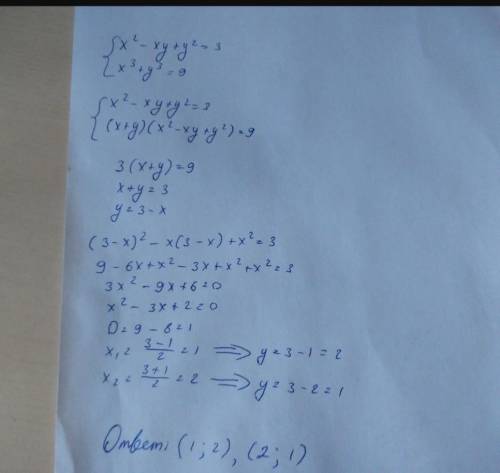 { x² - xy + y² = 3
x³ + y³ = 9
{ x² - xy + y² = 3
(x+y)(x² - xy + y²) = 9
3(x+y) = 9
x + y = 3
y = 3 - x
(3-x)² - x(3-x) + x² = 3
9 - 6x + x² - 3x + x² + x² = 3
3x² - 9x + 6 = 0
x² - 3x + 2 = 0
D = 9 - 8 = 1
x₁ = (3-1)/2 = 1 ⟹ y = 3 - 1 = 2
x₂ = (3+1)/2 = 2 ⟹ y = 3 - 2 = 1
Ответ: (1; 2), (2; 1)